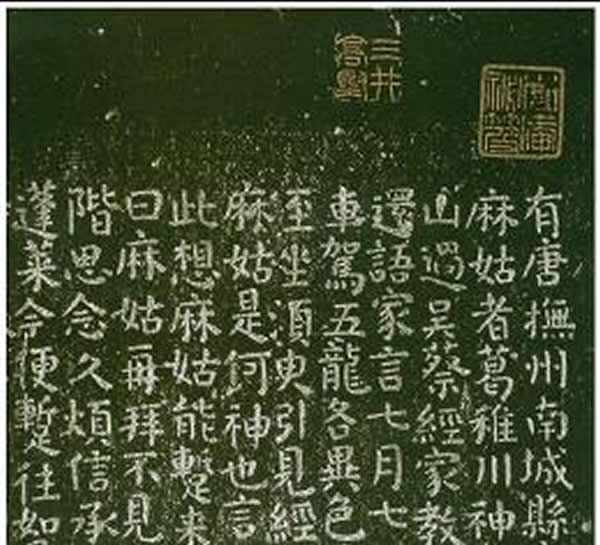 三井
高堅
有唐撫州南城縣
麻姑者葛稚川神
山過吳蔡經家教
還語家言七月七
車駕五龍各異色
至坐須臾引見經
麻姑是何神也言
此想麻姑能蹔來
曰麻姑再拜不見
階思念久煩信承
蓬萊今便蹔往如